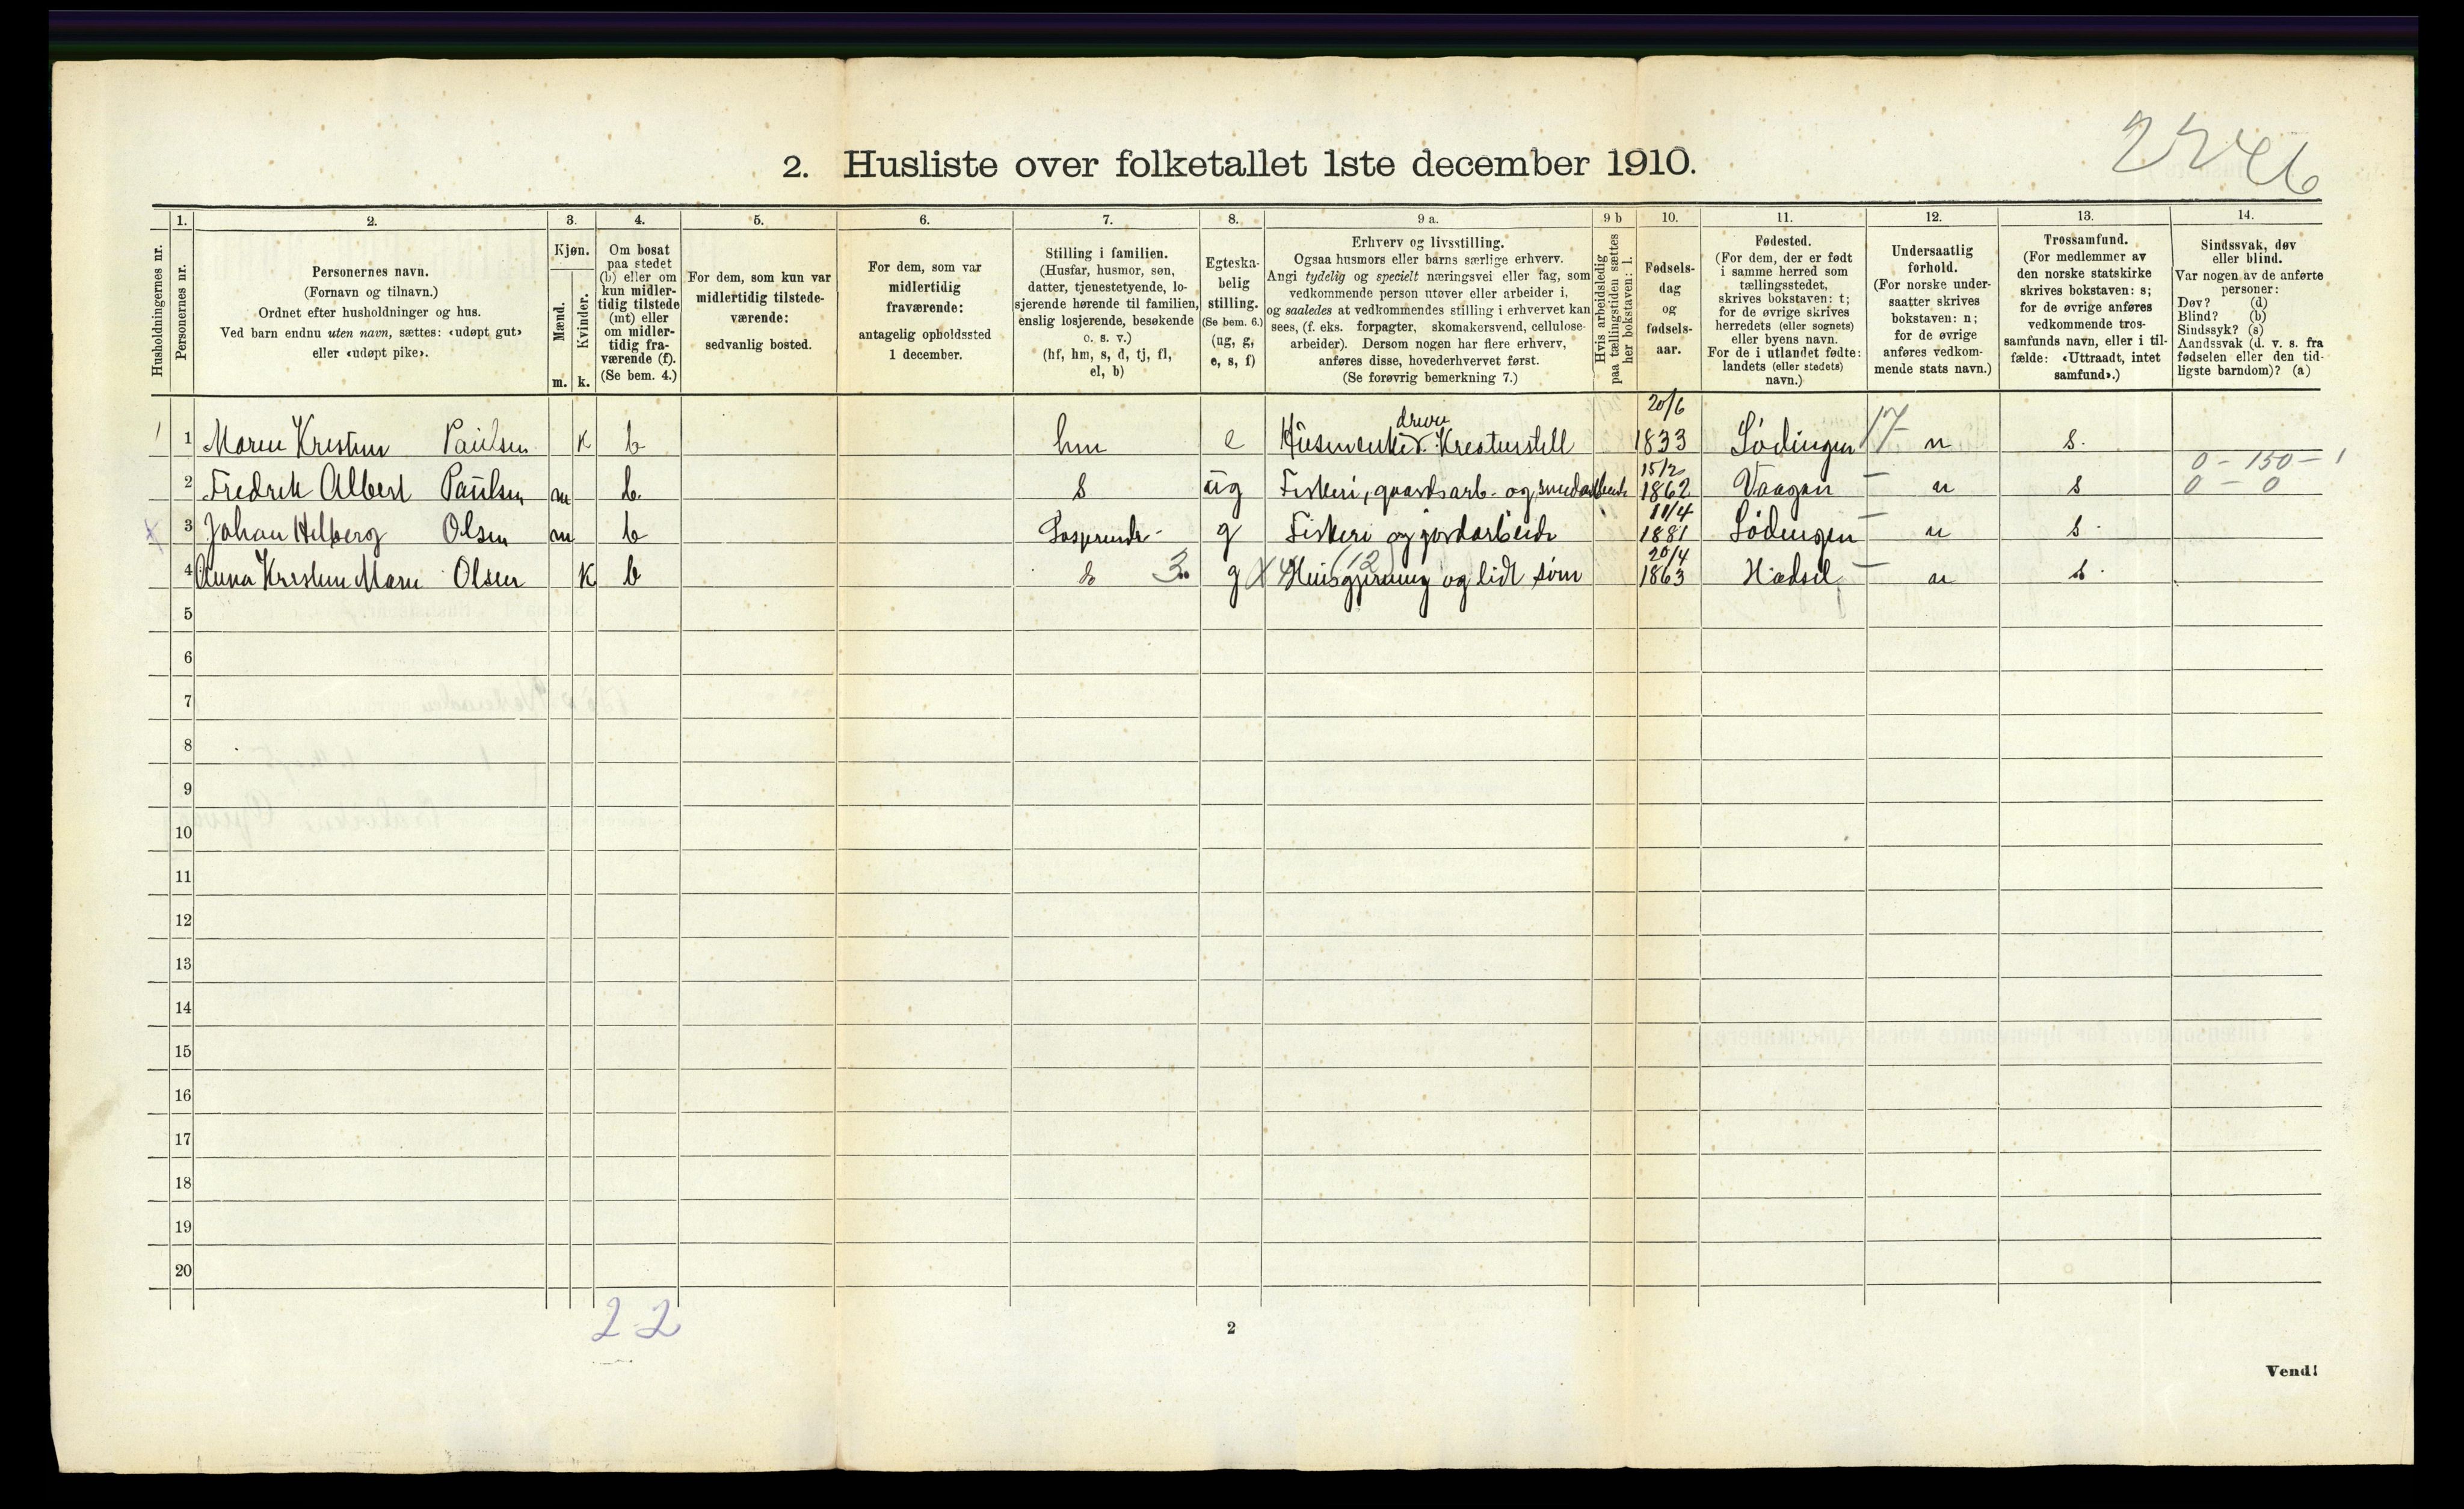 2246
2. Husliste over folketallet 1ste december 1910.
Husholdningernes nr.
1.
Personernes nr.
2.
Personernes navn.
(Fornavn og tilnavn.)
Ordnet efter husholdninger og hus.
Ved barn endnu uten navn, sættes: «udøpt gut»
eller «udøpt pike».
3.
Kjøn.
Mænd.
Kvinder.
m. k.
4.
Om bosat
paa stedet
(b) eller om
kun midler-
tidig tilstede
(mt) eller
om midler-
tidig fra-
værende (f).
(Se bem. 4.)
5.
For dem, som kun var
midlertidig tilstede-
værende:
sedvanlig bosted.
6.
For dem, som var
midlertidig
fraværende:
antagelig opholdssted
1 december.
7.
Stilling i familien.
(Husfar, husmor, søn,
datter, tjenestetyende, lo-
sjerende hørende til familien,
enslig losjerende, besøkende
o. s. v.)
(hf, hm, s, d, tj, fl,
el, b)
8.
Egteska-
belig
stilling.
(Se bem. 6.)
(ug, g,
e, s, f)
9 a.
Erhverv og livsstilling.
Ogsaa husmors eller barns særlige erhverv.
Angi tydelig og specielt næringsvei eller fag, som
vedkommende person utøver eller arbeider i,
og saaledes at vedkommendes stilling i erhvervet kan
sees, (f. eks. forpagter, skomakersvend, cellulose-
arbeider). Dersom nogen har flere erhverv,
anføres disse, hovederhvervet først.
(Se forøvrig bemerkning 7.)
9 b
Hvis arbeidsledig
paa tællingstiden sættes
her bokstaven: l.
10.
Fødsels-
dag
og
fødsels-
aar.
11.
Fødested.
(For dem, der er født
i samme herred som
tællingsstedet,
skrives bokstaven: t;
for de øvrige skrives
herredets (eller sognets)
eller byens navn.
For de i utlandet fødte:
landets (eller stedets)
navn.)
12.
Undersaatlig
forhold.
(For norske under-
saatter skrives
bokstaven: n;
for de øvrige
anføres vedkom-
mende stats navn.)
13.
Trossamfund.
(For medlemmer av
den norske statskirke
skrives bokstaven: s;
for de øvrige anføres
vedkommende tros-
samfunds navn, eller i til-
fælde: «Uttraadt, intet
samfund».)
14.
Sindssvak, døv
eller blind.
Var nogen av de anførte
personer:
Døv? (d)
Blind? (b)
Sindssyk? (s)
Aandssvak (d. v. s. fra
fødselen eller den tid-
ligste barndom)? (a)
1 1 Maren Kristine Paulsen k b hm e Kreaturstell 20/6 1833 Lødingen 17 n s.
2 Fredrik Albert Paulsen m b. s ug Fiskeri, gaardsarb. og smedarbeide 15/2 1862 Vaagan – n s 0 – 150 – 1
0 – 0
x 3 Johan Hilberg Olsen m b Losjerende g Fiskeri og jordarbeide 11/4 1881 Lødingen – n s.
4 Anna Kristine Marie Olsen K b do 3 g Husgjerning og lidt søm 20/4 1863 Hadsel – n s.
5
6
7
8
9
10
11
12
13
14
15
16
17
18
19
20
2 2
2
Vend!